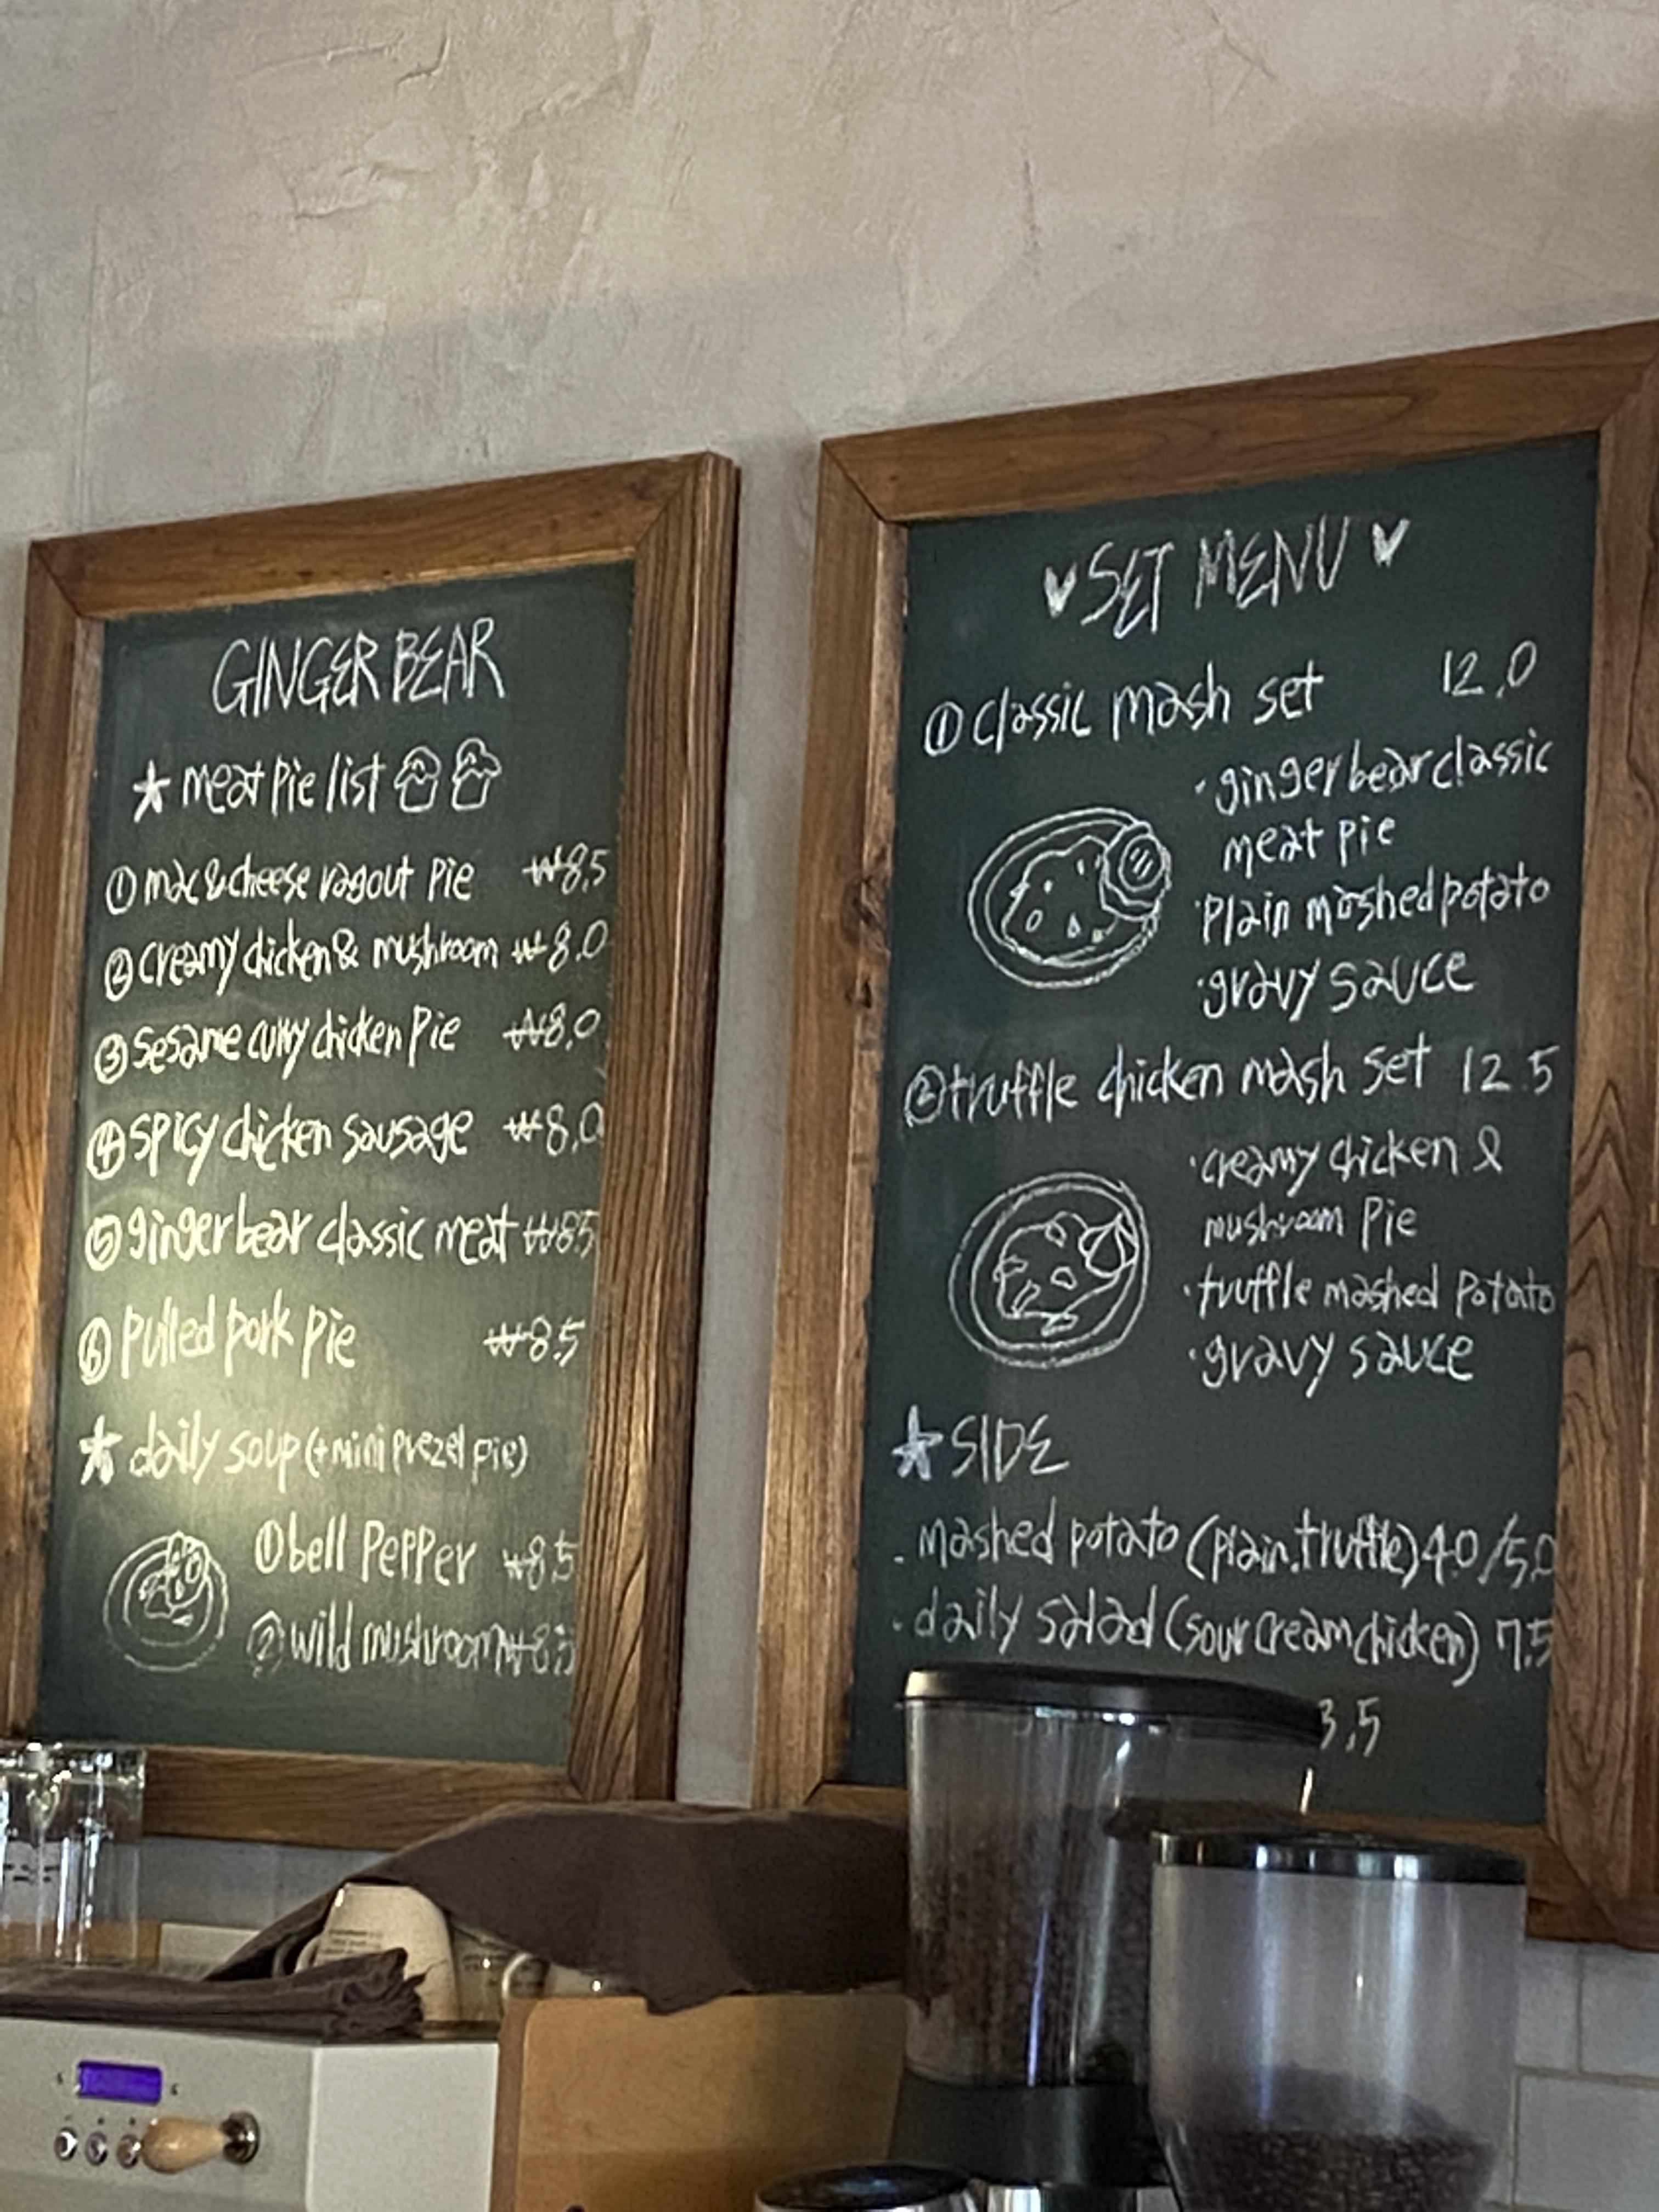 GINGER BEAR
★ meat pie list
① mac & cheese ragout pie ₩8.5
② creamy chicken & mushroom ₩8.0
③ sesame curry chicken pie ₩8.0
④ spicy chicken sausage ₩8.0
⑤ ginger bear classic meat ₩8.5
⑥ pulled pork pie ₩8.5
★ daily soup (+mini prezel pie)
① bell pepper ₩8.5
② wild mushroom ₩8.5
♥ SET MENU ♥
① classic mash set 12.0
· ginger bear classic
meat pie
· plain mashed potato
· gravy sauce
② truffle chicken mash set 12.5
· creamy chicken &
mushroom pie
· truffle mashed potato
· gravy sauce
★ SIDE
- mashed potato (plain, truffle) 4.0/5.0
- daily salad (sour cream chicken) 7.5
3.5